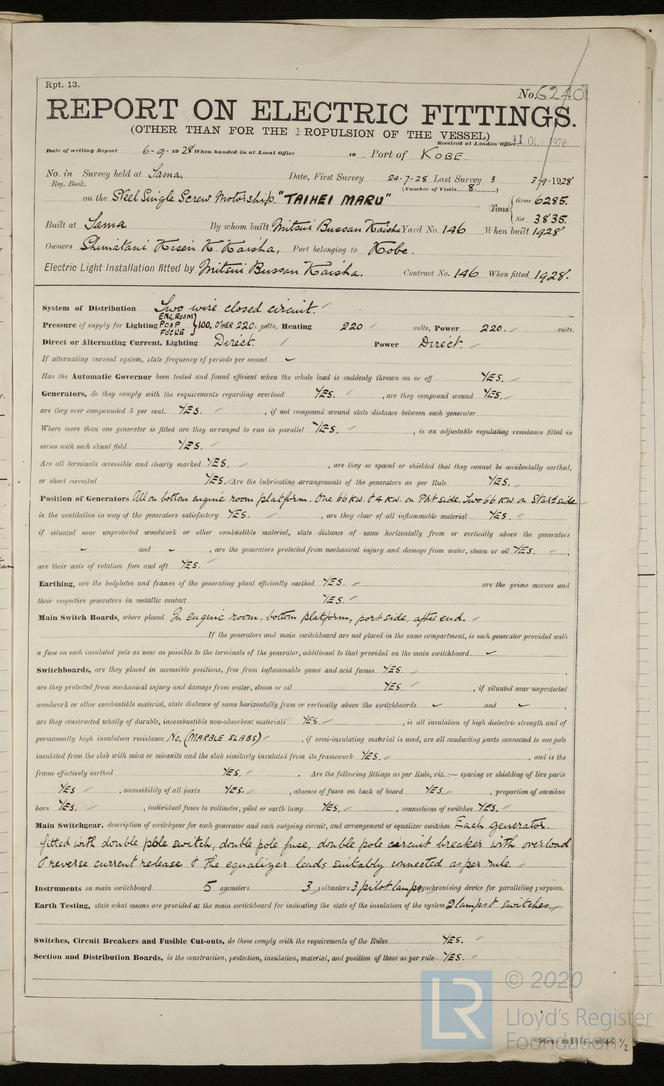 Rpt. 13.
No. 6240
REPORT ON ELECTRIC FITTINGS.
(OTHER THAN FOR THE PROPULSION OF THE VESSEL)
Received at London Office 11 OCT 1928
Date of writing Report 6-9-1928 When handed in at Local Office 19 Port of KOBE.
No. in Survey held at Tama. Date, First Survey 24-7-28 Last Survey 3 3-9-1928
Reg. Book. (Number of Visits 8)
on the Steel Single Screw Motorship "TAIHEI MARU" Tons { Gross 6285.
Net 3835.
Built at Tama By whom built Mitsui Bussan Kaisha Yard No. 146 When built 1928
Owners Shimatani Kisen K. Kaisha, Port belonging to Kobe.
Electric Light Installation fitted by Mitsui Bussan Kaisha. Contract No. 146 When fitted 1928.
System of Distribution Two wire closed circuit.
Pressure of supply for Lighting ENG. ROOM POOP FOC'LE } 100, OTHER 220. volts, Heating 220 volts, Power 220. volts.
Direct or Alternating Current, Lighting Direct Power Direct.
If alternating current system, state frequency of periods per second
Has the Automatic Governor been tested and found efficient when the whole load is suddenly thrown on or off YES.
Generators, do they comply with the requirements regarding overload YES. , are they compound wound YES.
are they over compounded 5 per cent. YES. , if not compound wound state distance between each generator
Where more than one generator is fitted are they arranged to run in parallel YES. , is an adjustable regulating resistance fitted in
series with each shunt field YES.
Are all terminals accessible and clearly marked YES. , are they so spaced or shielded that they cannot be accidentally earthed,
or short circuited YES. Are the lubricating arrangements of the generators as per Rule YES.
Position of Generators All on bottom engine room platform. One 66 KW. & 4 KW. on Port side. Two 66 KW. on Starb'd side
is the ventilation in way of the generators satisfactory YES. , are they clear of all inflammable material YES.
if situated near unprotected woodwork or other combustible material, state distance of same horizontally from or vertically above the generators
and , are the generators protected from mechanical injury and damage from water, steam or oil YES. ,
are their axis of rotation fore and aft YES.
Earthing, are the bedplates and frames of the generating plant efficiently earthed YES. are the prime movers and
their respective generators in metallic contact YES.
Main Switch Boards, where placed In engine room, bottom platform, port side, after end.
If the generators and main switchboard are not placed in the same compartment, is each generator provided with
a fuse on each insulated pole as near as possible to the terminals of the generator, additional to that provided on the main switchboard
Switchboards, are they placed in accessible positions, free from inflammable gases and acid fumes YES. ,
are they protected from mechanical injury and damage from water, steam or oil YES. , if situated near unprotected
woodwork or other combustible material, state distance of same horizontally from or vertically above the switchboards and ,
are they constructed wholly of durable, incombustible non-absorbent materials YES. , is all insulation of high dielectric strength and of
permanently high insulation resistance No. (MARBLE SLABS) , if semi-insulating material is used, are all conducting parts connected to one pole
insulated from the slab with mica or micanite and the slab similarly insulated from its framework YES. , and is the
frame effectively earthed YES. . Are the following fittings as per Rule, viz.:— spacing or shielding of live parts
YES , accessibility of all parts YES. , absence of fuses on back of board YES. , proportion of omnibus
bars YES. , individual fuses to voltmeter, pilot or earth lamp YES. , connections of switches YES.
Main Switchgear, description of switchgear for each generator and each outgoing circuit, and arrangement of equalizer switches Each generator
fitted with double pole switch, double pole fuse, double pole circuit breaker with overload
& reverse current release & the equalizer leads suitably connected as per rule.
Instruments on main switchboard 5 ammeters 3 voltmeters 3 pilot lamps synchronising device for paralleling purposes.
Earth Testing, state what means are provided at the main switchboard for indicating the state of the insulation of the system 2 lamps & switches.
Switches, Circuit Breakers and Fusible Cut-outs, do these comply with the requirements of the Rules YES.
Section and Distribution Boards, is the construction, protection, insulation, material, and position of these as per rule YES.
© 2020
LR
Lloyd's Register
Foundation
1/2